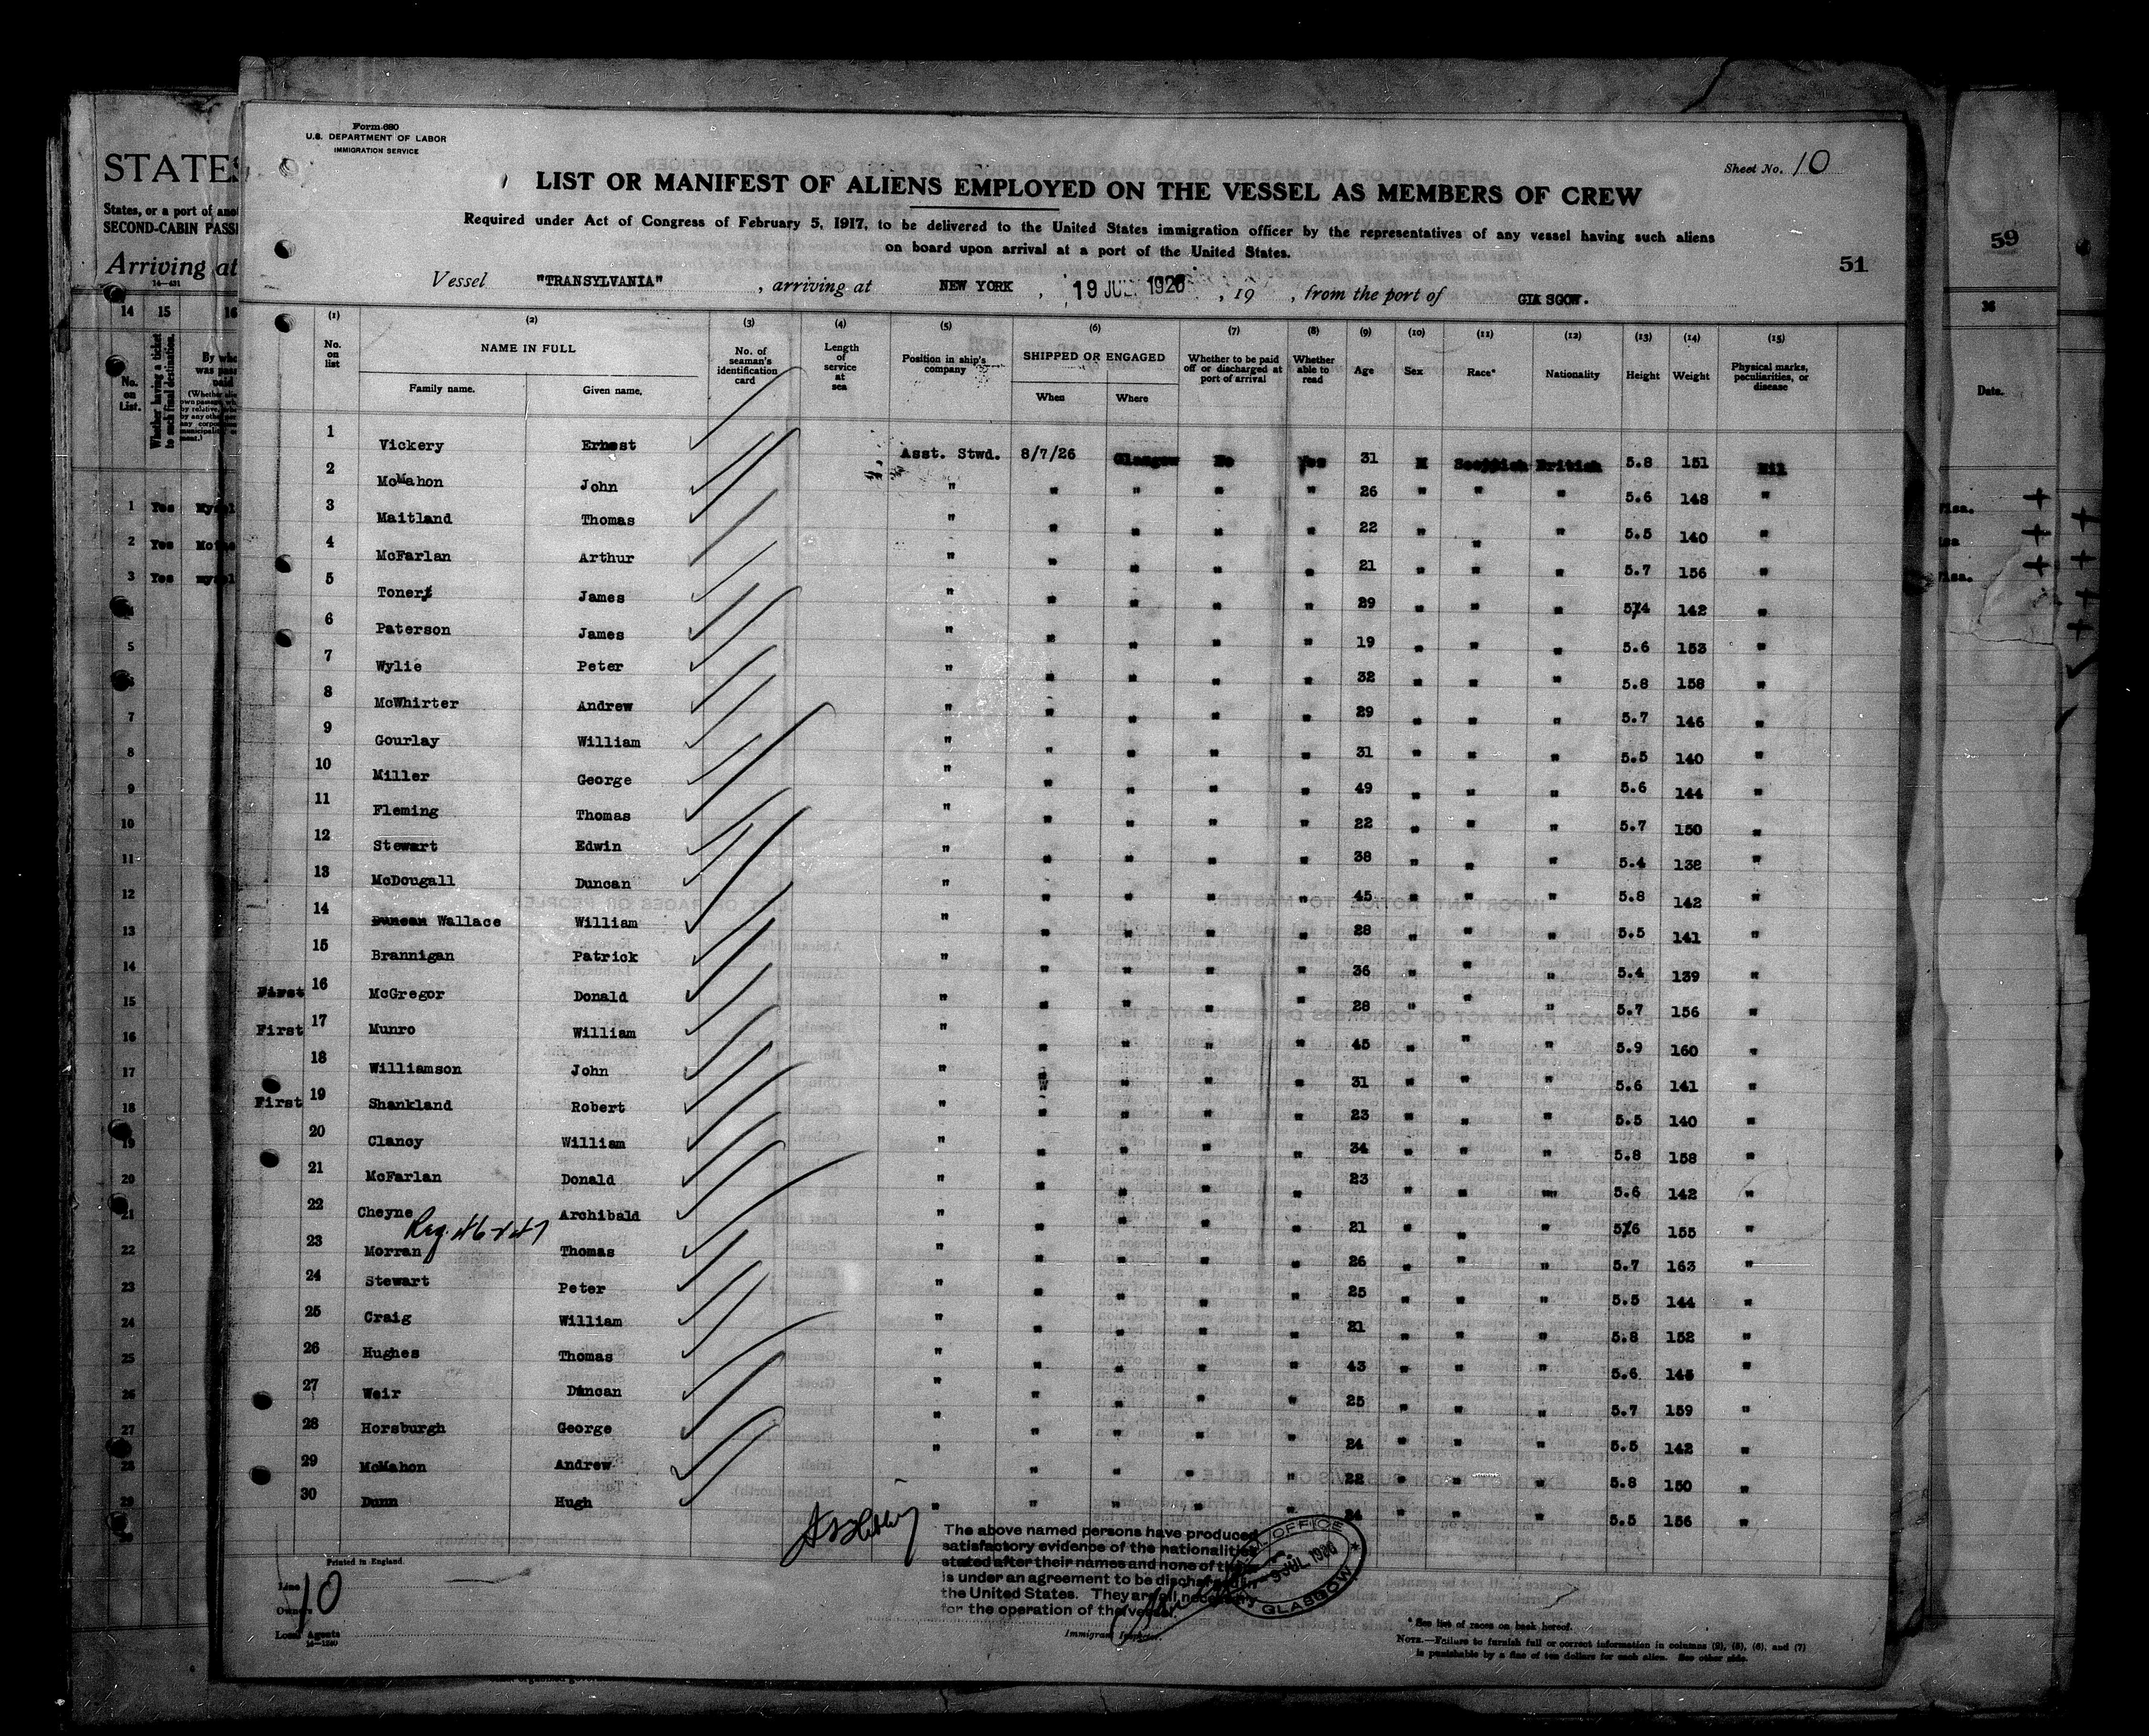 Form 680
U.S. DEPARTMENT OF LABOR
IMMIGRATION SERVICE
Sheet No. 10
LIST OR MANIFEST OF ALIENS EMPLOYED ON THE VESSEL AS MEMBERS OF CREW
Required under Act of Congress of February 5, 1917, to be delivered to the United States immigration officer by the representatives of any vessel having such aliens
on board upon arrival at a port of the United States.
51
Vessel "TRANSYLVANIA", arriving at NEW YORK, 19 JUL 1926, 19 , from the port of GLASGOW.
(1) (2) (3) (4) (5) (6) (7) (8) (9) (10) (11) (12) (13) (14) (15)
No. on list NAME IN FULL Family name. Given name. No. of seaman's identification card Length of service at sea Position in ship's company SHIPPED OR ENGAGED When Where Whether to be paid off or discharged at port of arrival Whether able to read Age Sex Race* Nationality Height Weight Physical marks, peculiarities, or disease
1 Vickery Ernest Asst. Stwd. 8/7/26 Glasgow No Yes 31 M Scottish British 5.8 151 Nil
2 McMahon John " " " " " 26 " " " 5.6 148 "
3 Maitland Thomas " " " " " 22 " " " 5.5 140 "
4 McFarlan Arthur " " " " " 21 " " " 5.7 156 "
5 Toner James " " " " " 29 " " " 5.4 142 "
6 Paterson James " " " " " 19 " " " 5.6 153 "
7 Wylie Peter " " " " " 32 " " " 5.8 158 "
8 McWhirter Andrew " " " " " 29 " " " 5.7 146 "
9 Gourlay William " " " " " 31 " " " 5.5 140 "
10 Miller George " " " " " 49 " " " 5.6 144 "
11 Fleming Thomas " " " " " 22 " " " 5.7 150 "
12 Stewart Edwin " " " " " 38 " " " 5.4 138 "
13 McDougall Duncan " " " " " 45 " " " 5.8 142 "
14 Duncan Wallace William " " " " " 28 " " " 5.5 141 "
15 Brannigan Patrick " " " " " 36 " " " 5.4 139 "
First 16 McGregor Donald " " " " " 28 " " " 5.7 156 "
First 17 Munro William " " " " " 45 " " " 5.9 160 "
18 Williamson John " " " " " 31 " " " 5.6 141 "
First 19 Shankland Robert " " " " " 23 " " " 5.5 140 "
20 Clancy William " " " " " 34 " " " 5.8 158 "
21 McFarlan Donald " " " " " 23 " " " 5.6 142 "
22 Cheyne Archibald " " " " " 21 " " " 5.6 155 "
23 Morran Thomas " " " " " 26 " " " 5.7 163 "
24 Stewart Peter " " " " " 25 " " " 5.5 144 "
25 Craig William " " " " " 21 " " " 5.8 152 "
26 Hughes Thomas " " " " " 43 " " " 5.6 145 "
27 Weir Duncan " " " " " 25 " " " 5.7 159 "
28 Horsburgh George " " " " " 24 " " " 5.5 142 "
29 McMahon Andrew " " " " " 22 " " " 5.8 150 "
30 Dunn Hugh " " " " " 24 " " " 5.5 156 "
The above named persons have produced
satisfactory evidence of the nationalities
stated after their names and none of them
is under an agreement to be discharged in
the United States. They are all necessary
for the operation of the vessel.
Immigrant Inspector.
OFFICE
9 JUL 1926
GLASGOW
Printed in England.
Line
10
Owners
Local Agents
14—1240
* See list of races on back hereof.
NOTE.—Failure to furnish full or correct information in columns (2), (5), (6), and (7)
is punishable by a fine of ten dollars for each alien. See other side.
STATES
States, or a port of
SECOND-CABIN
Arriving at
14 15 16
No. on List.
Whether having a ticket to such final destination.
1 Yes
2 Yes
3 Yes
59
36
Date.